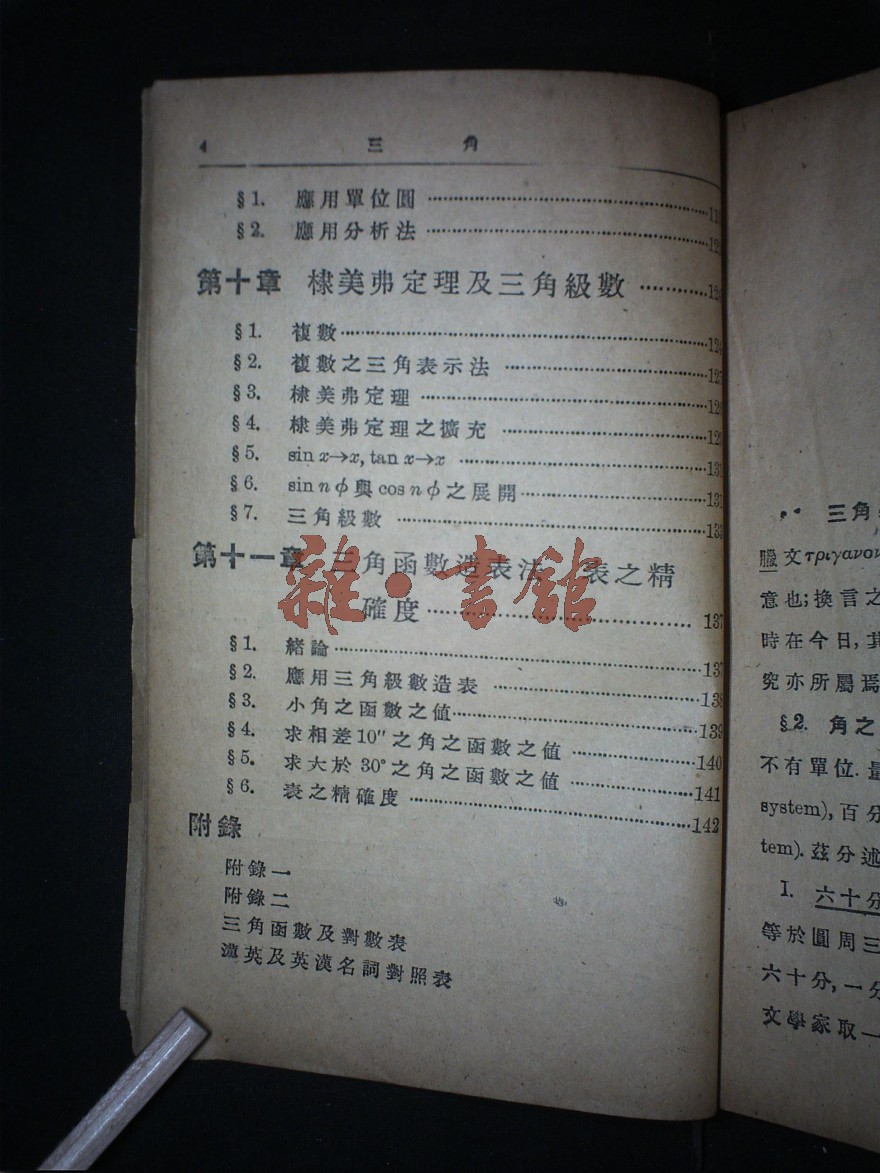 4 三角
§1. 應用單位圓
§2. 應用分析法
第十章 棣美弗定理及三角級數
§1. 複數
§2. 複數之三角表示法
§3. 棣美弗定理
§4. 棣美弗定理之擴充
§5. sin x→x, tan x→x
§6. sin n ϕ與cos n ϕ之展開
§7. 三角級數
第十一章 三角函數造表法 表之精
確度 137
§1. 緒論 137
§2. 應用三角級數造表 138
§3. 小角之函數之值 139
§4. 求相差10″之角之函數之值 140
§5. 求大於30°之角之函數之值 141
§6. 表之精確度 142
附錄
附錄一
附錄二
三角函數及對數表
漢英及英漢名詞對照表
雜·書館
三角
臘文τριγανον
意也;換言之
時在今日,其
究亦所屬焉
§2. 角之
不有單位.量
system), 百分
tem). 茲分述
I. 六十分
等於圓周三
六十分,一分
文學家取一